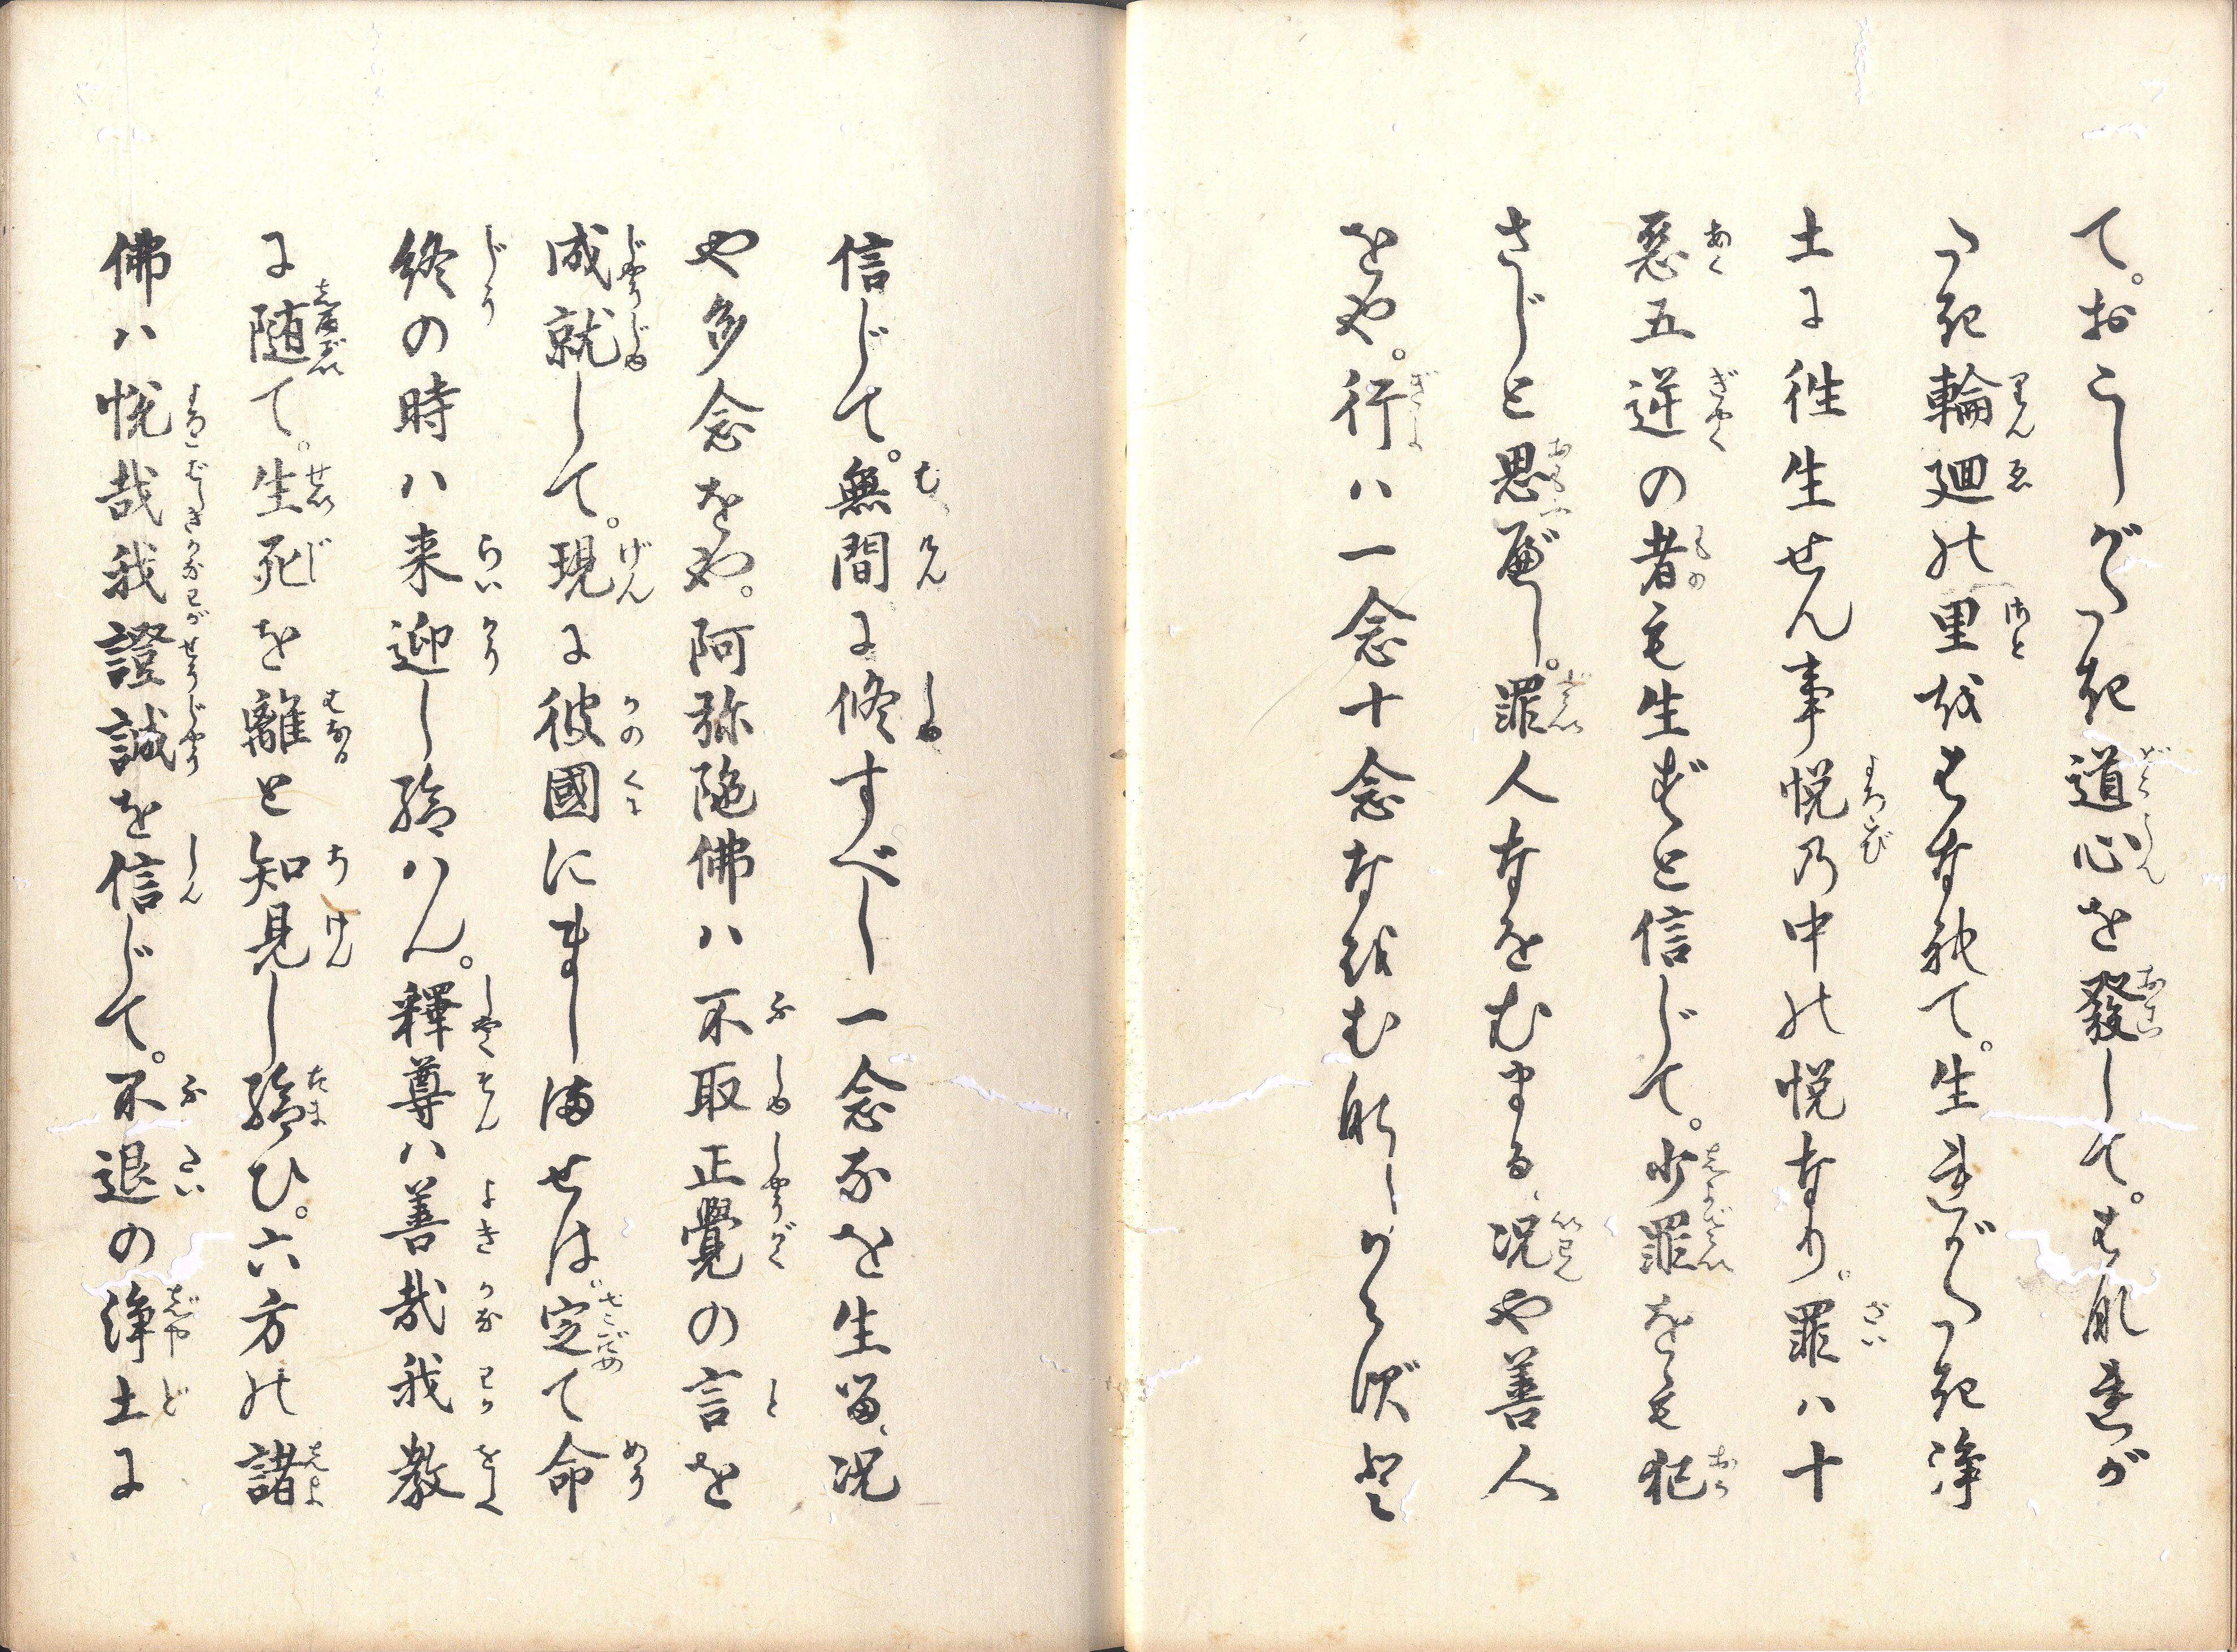 て。おこしがたき道心を發して。はなれが
たき輪廻の里をはなれて。生れがたき淨
土に往生せん事悦の中の悦なり。罪ハ十
惡五逆の者も生ずと信じて。少罪をも犯
さじと思べし。罪人なをむまる、况や善人
をや。行ハ一念十念なをむなしからずと
信じて。無間に修すべし一念なを生る、况
や多念をや。阿弥陁佛ハ不取正覺の言を
成就して。現に彼國にましませば、定て命
終の時ハ来迎し給ハん。釋尊ハ善哉我教
に随て。生死を離と知見し給ひ。六方の諸
佛ハ悦哉我證誠を信じて。不退の淨土に